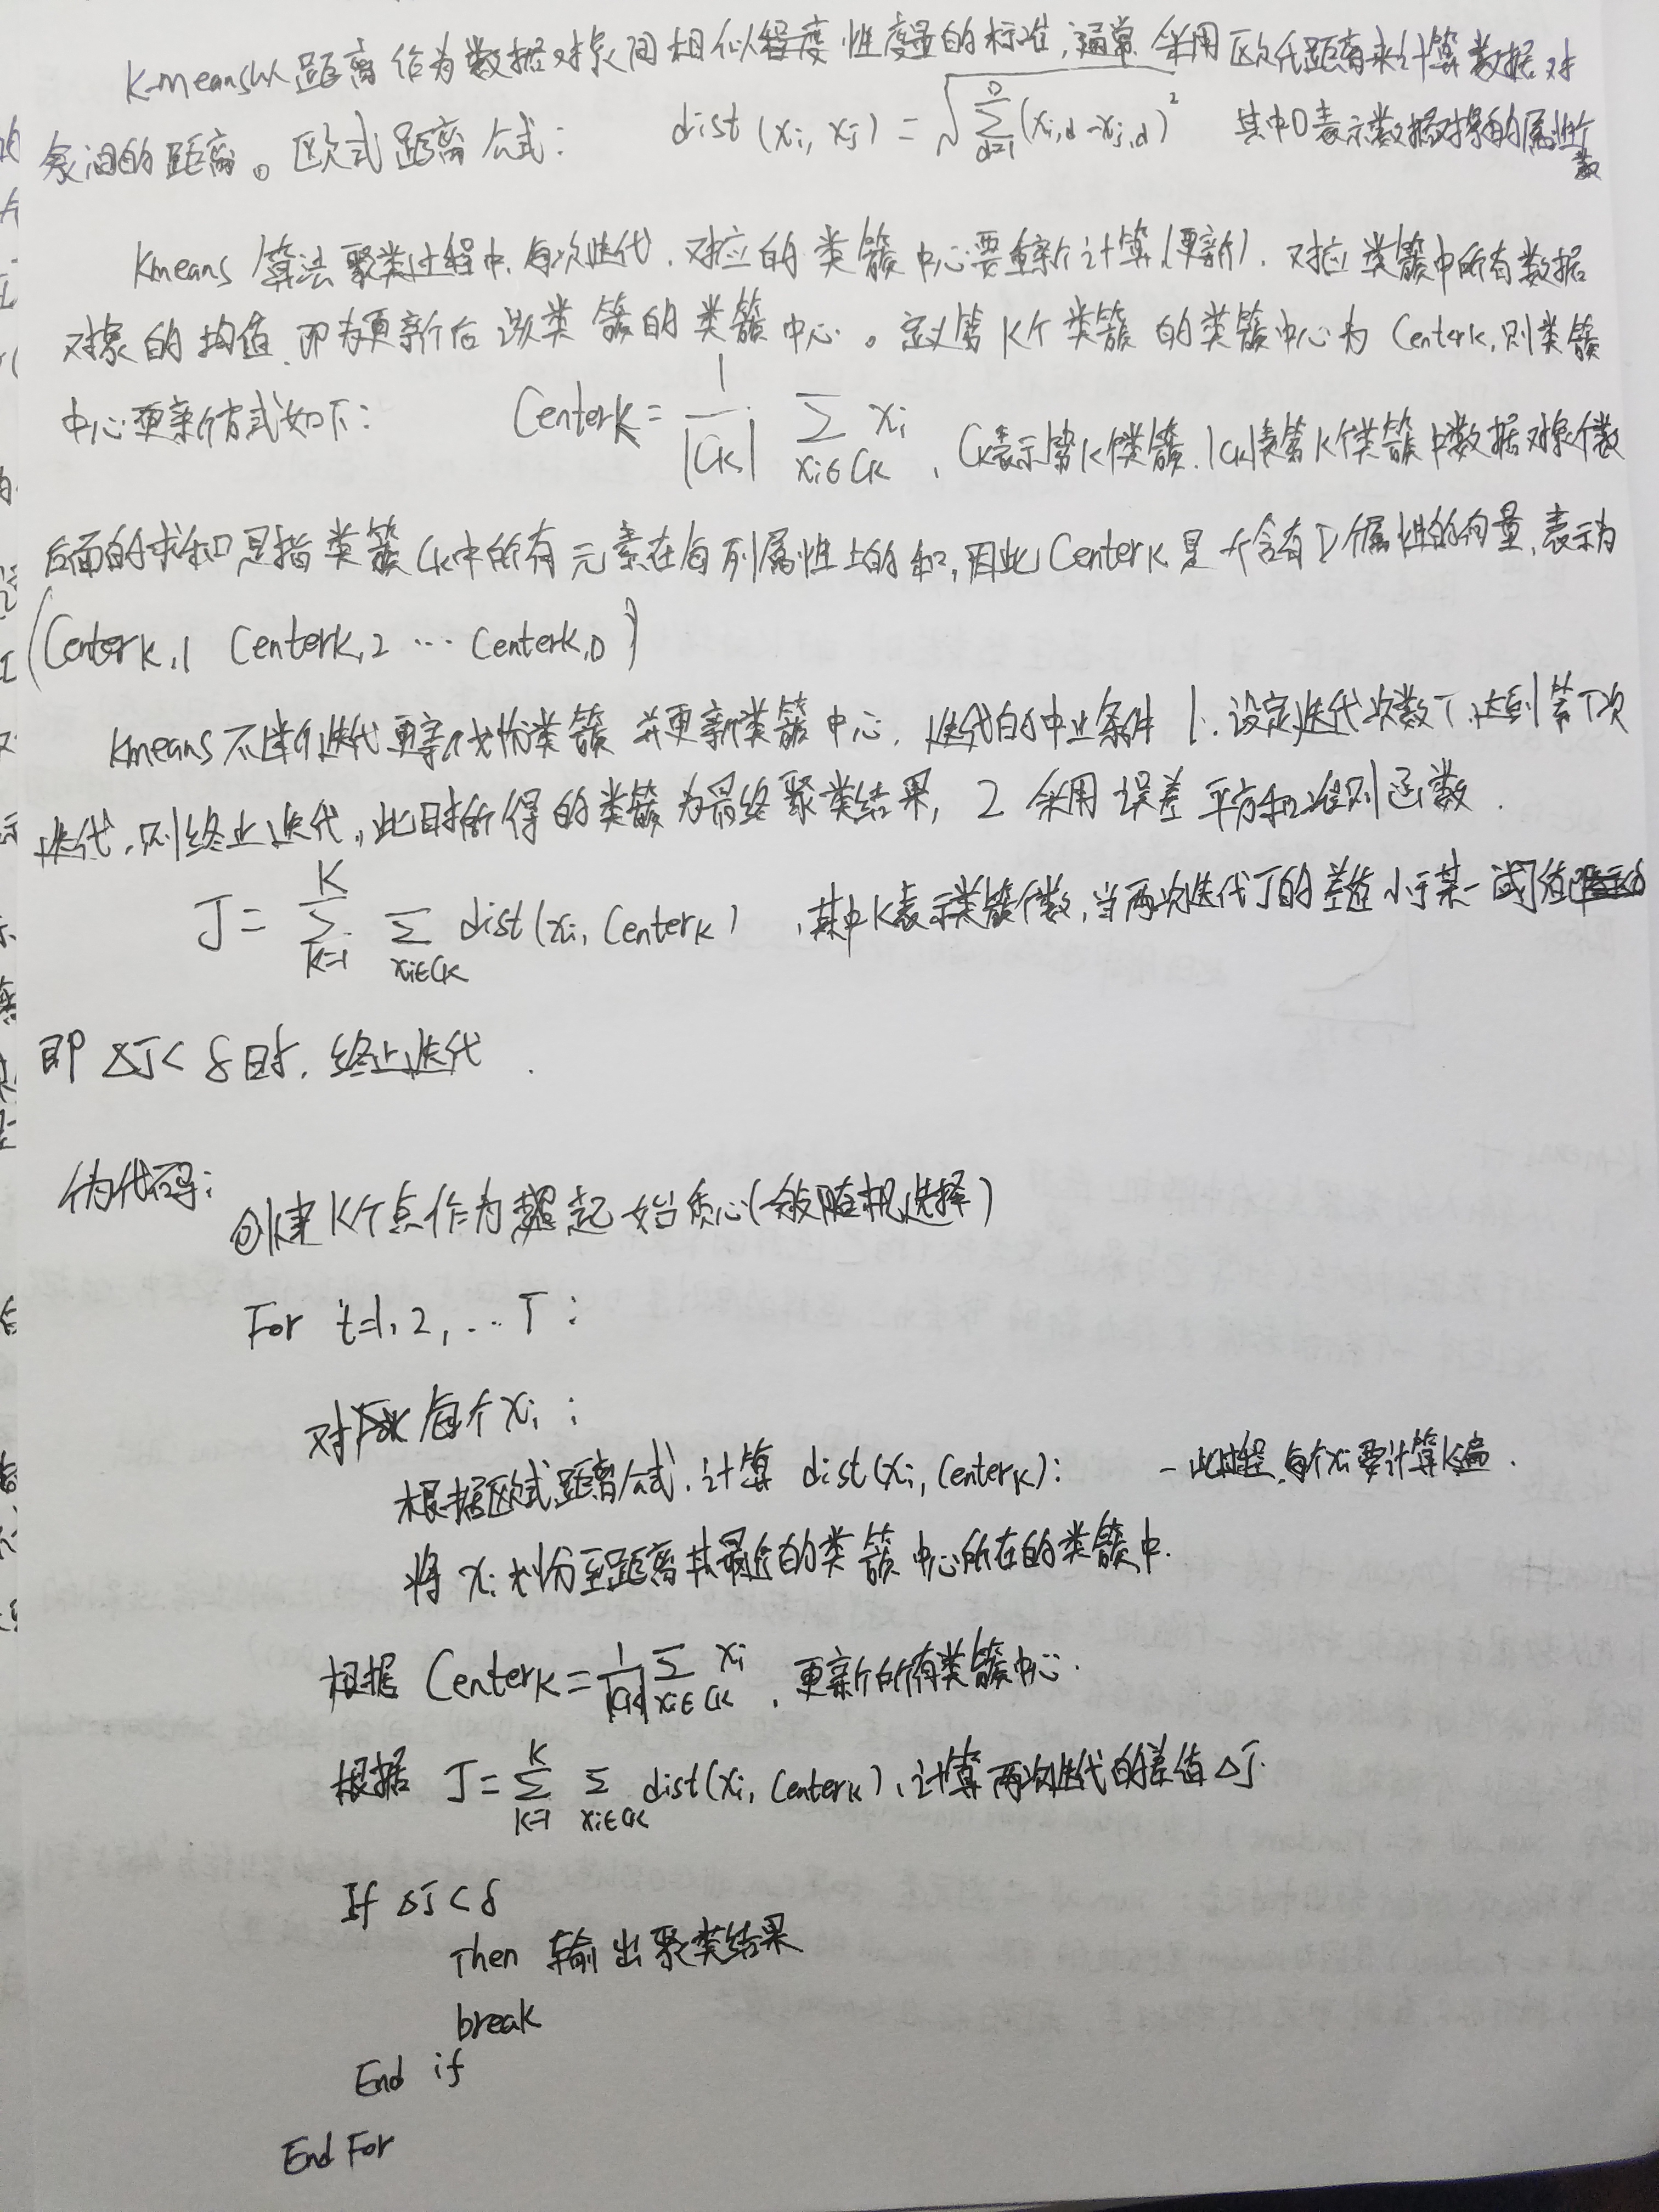 K-means以距离作为数据对象间相似程度性度量的标准,通常采用欧氏距离来计算数据对
象间的距离。欧式距离公式: dist(xi, xj) = √∑d=1^D (xi,d - xj,d)² 其中D表示数据对象的属性个数
Kmeans 算法聚类过程中,每次迭代,对应的类簇中心要重新计算(更新),对应类簇中所有数据
对象的均值,即为更新后该类簇的类簇中心。定义第K个类簇的类簇中心为 Centerk,则类簇
中心更新方式如下: Centerk = 1/|Ck| ∑xi∈Ck xi , Ck表示第K个类簇, |Ck|表第K个类簇中数据对象个数
后面的求和是指类簇Ck中所有元素在每列属性上的和,因此Centerk是一个含有D个属性的向量,表示为
(Centerk,1 Centerk,2 … Centerk,D)
Kmeans不断的迭代更新划分类簇并更新类簇中心,迭代的中止条件 1. 设定迭代次数T,达到第T次
迭代,则终止迭代,此时所得的类簇为最终聚类结果, 2 采用误差平方和准则函数.
J = ∑k=1^K ∑xi∈Ck dist(xi, Centerk) ,其中K表示类簇个数,当两次迭代J的差值小于某一阈值
即 ΔJ < δ时,终止迭代.
伪代码:
创建K个点作为起始质心(一般随机选择)
For t=1, 2, … T :
对每个xi :
根据欧式距离公式,计算 dist(xi, Centerk): -此过程,每个xi要计算K遍.
将xi划分至距离其最近的类簇中心所在的类簇中.
根据 Centerk = 1/|Ck| ∑xi∈Ck xi , 更新所有类簇中心.
根据 J = ∑k=1^K ∑xi∈Ck dist(xi, Centerk), 计算两次迭代的差值ΔJ.
If ΔJ < δ
Then 输出聚类结果
break
End if
End For